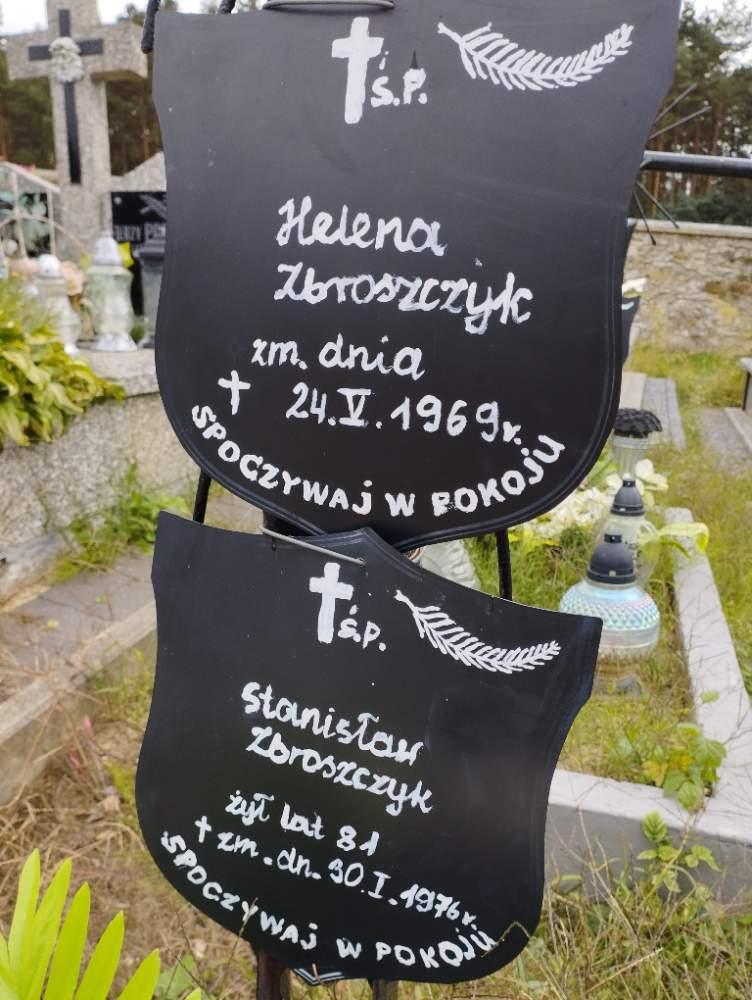 ś.P.
Helena
Zbroszczyk
zm. dnia
24.V.1969r.
SPOCZYWAJ W POKOJU
ś.p.
Stanisław
Zbroszczyk
żył lat 81
zm.dn.30.I.1976r.
SPOCZYWAJ W POKOJU